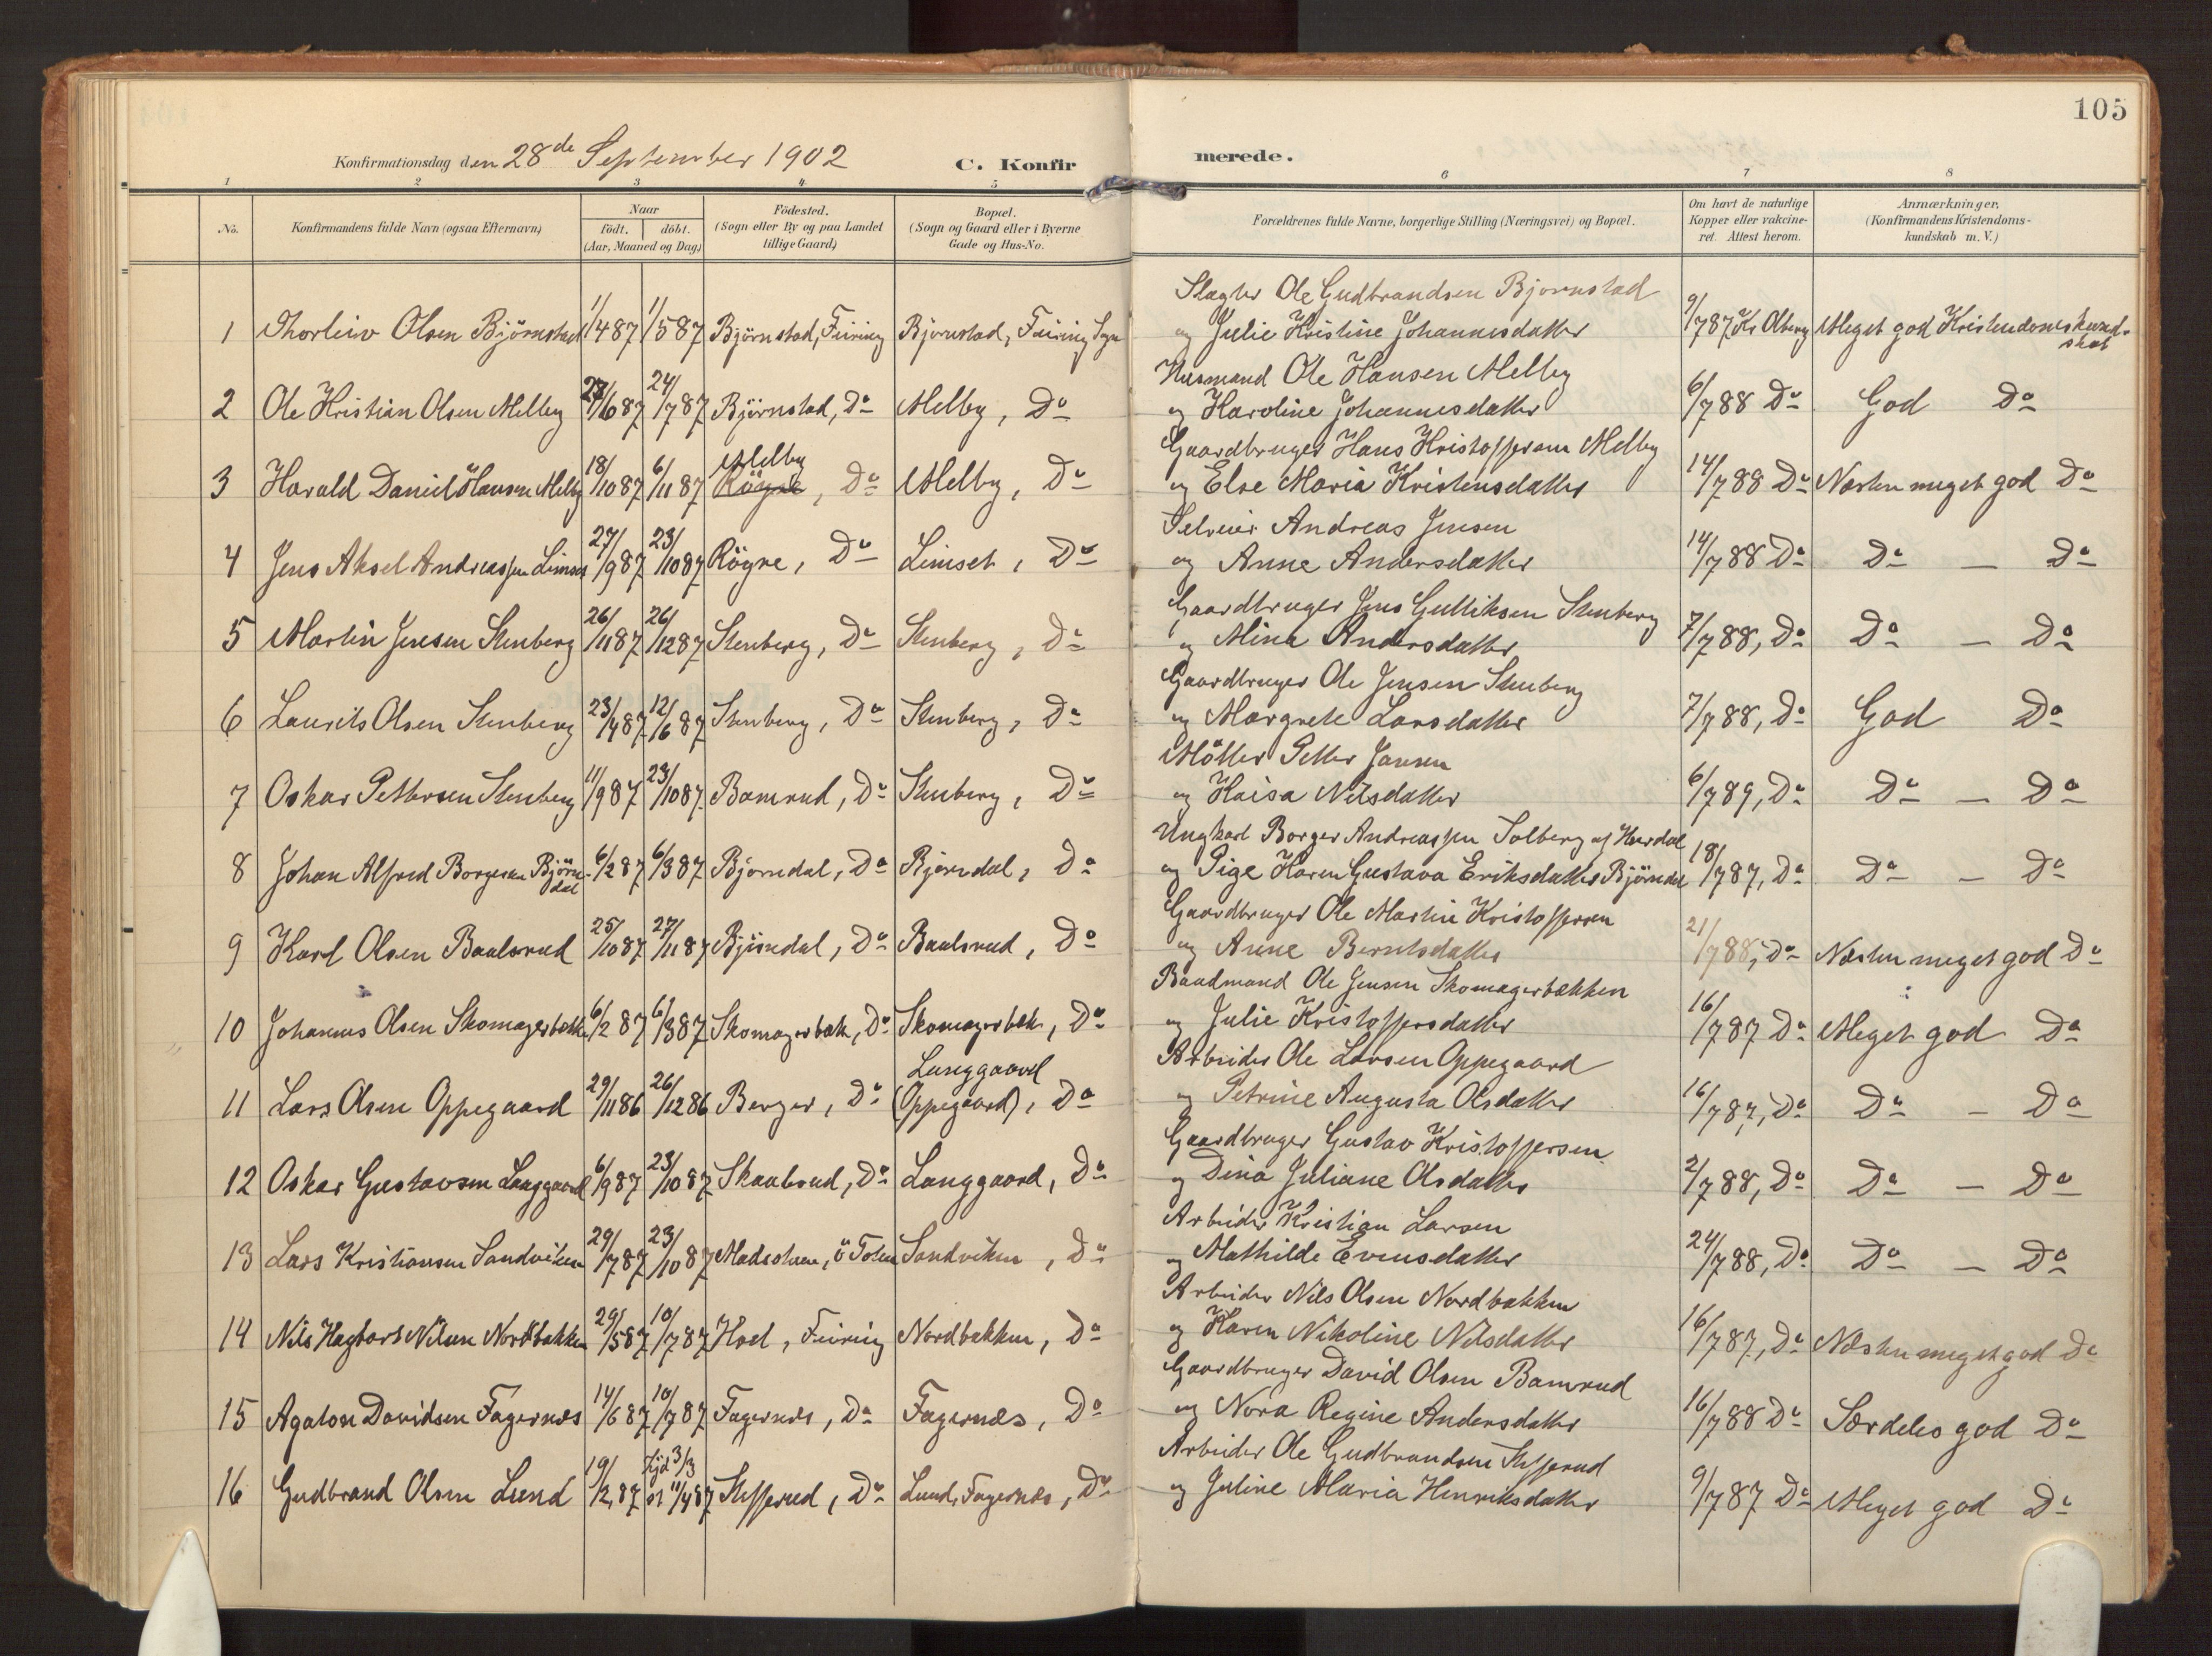 105
Konfirmationsdag den 28de September 1902
C. Konfirmerede.
1 2 3 4 5 6 7 8
No.
Konfirmandens fulde Navn (ogsaa Efternavn)
Naar
födt. döbt.
(Aar, Maaned og Dag)
Födested.
(Sogn eller By og paa Landet
tillige Gaard)
Bopæl.
(Sogn og Gaard eller i Byerne
Gade og Hus-No.
Forældrenes fulde Navne, borgerlige Stilling (Næringsvei) og Bopæl.
Om havt de naturlige
Kopper eller vakcine-
ret. Attest herom.
Anmærkninger.
(Konfirmandens Kristendoms-
kundskab m. V.)
Slagter Ole Gudbrandsen Bjørnstad
1 Thorleiv Olsen Björnstad 11/4 87 1/5 87 Björnstad, Feiring Bjørnstad, Feiring Sogn og Julie Kristine Johannesdatter 9/7 87 Kr Olberg Meget god Kristendomskund-
skab
Husmand Ole Hansen Melby
2 Ole Kristian Olsen Melby 27/6 87 24/7 87 Björnstad, Do Melby, Do og Karoline Johannesdatter 6/7 88 Do God Do
Gaardbruger Hans Kristoffersen Melby
Melby
3 Harald Daniel Hansen Melby 18/10 87 6/11 87 Rögne, Do Melby, Do og Else Maria Kristensdatter 14/7 88 Do Næsten meget god Do
Selveier Andreas Jensen
4 Jens Aksel Andreassen Limset 27/9 87 23/10 87 Rögne, Do Limset, Do og Anne Andersdatter 14/7 88 Do Do — Do
Gaardbruger Jens Gulliksen Stenberg
5 Martin Jensen Stenberg 26/11 87 26/12 87 Stenberg, Do Stenberg, Do og Mina Andersdatter 7/7 88, Do Do — Do
Gaardbruger Ole Jensen Stenberg
6 Laurits Olsen Stenberg 23/4 87 12/6 87 Stenberg, Do Stenberg, Do og Margrete Larsdatter 7/7 88, Do God Do
Möller Petter Jansen
7 Oskar Pettersen Stenberg 11/9 87 23/10 87 Bamrud, Do Stenberg, Do og Kaisa Nilsdatter 6/7 89, Do Do — Do
Ungkarl Borger Andreassen Solberg af Hurdal
8 Johan Alfred Borgersen Björn-
dal 6/2 87 6/3 87 Bjørndal, Do Bjørndal, Do og Pige Karen Gustava Eriksdatter Björndal 18/7 87, Do Do — Do
Gaardbruger Ole Martin Kristoffersen
9 Karl Olsen Baalsrud 25/10 87 27/11 87 Björndal, Do Baalsrud, Do og Anne Berntsdatter 21/7 88, Do Næsten meget god Do
Baadmand Ole Jensen Skomagerbækken
10 Johannes Olsen Skomagerbækken 6/2 87 6/3 87 Skomagerbæk, Do Skomagerbæk, Do og Julie Kristoffersdatter 16/7 87 Do Meget god Do
Arbeider Ole Larsen Oppegaard
Langgaard
11 Lars Olsen Oppegaard 29/11 86 26/12 86 Berger, Do (Oppegaard), Do og Petrine Augusta Olsdatter 16/7 87, Do Do — Do
Gaardbruger Gustav Kristoffersen
12 Oskar Gustavsen Langgaard 6/9 87 23/10 87 Skaabrud, Do Langgaard, Do og Dina Juliane Olsdatter 2/7 88, Do Do — Do
Arbeider Kristian Larsen
13 Lars Kristiansen Sandviken 29/7 87 23/10 87 Madsstuen, ö Toten Sandviken, Do og Mathilde Evensdatter 24/7 88, Do Do — Do
Arbeider Nils Olsen Nordbækken
14 Nils Hagbart Nilsen Nordbækken 29/5 87 10/7 87 Hoel, Feiring Nordbækken, Do og Karen Nikoline Nilsdatter 16/7 87, Do Næsten meget god Do
Gaardbruger David Olsen Bamrud
15 Agaton Davidsen Fagernæs 14/6 87 10/7 87 Fagernæs, Do Fagernæs, Do og Nora Regine Andersdatter 16/7 88 Do Særdeles god Do
Arbeider Ole Gudbrandsen Stefferud
16 Gudbrand Olsen Lund 19/2 87 hjd 3/3
11/4 87 Stefferud, Do Lund, Fagernæs, Do og Juline Maria Henriksdatter 9/7 87 Do Meget god Do